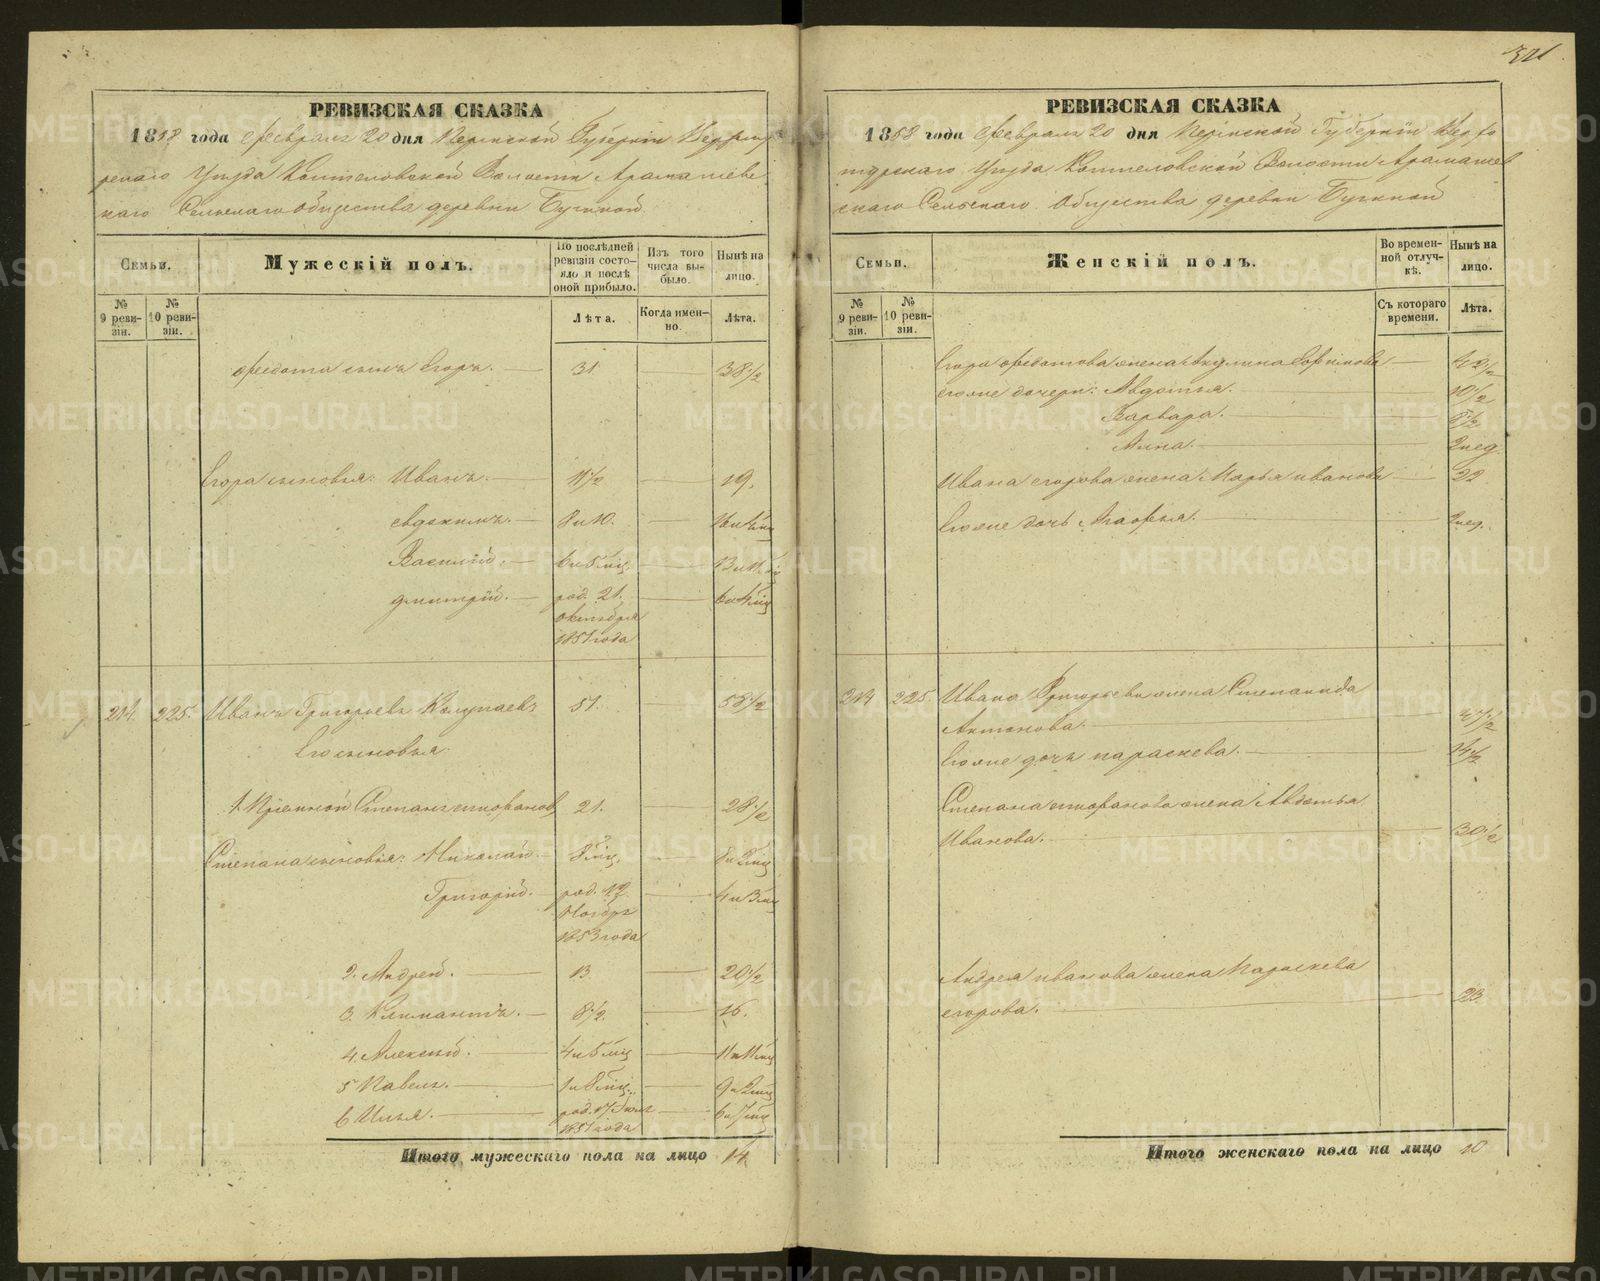 321
РЕВИЗСКАЯ СКАЗКА
1858 года Февраля 20 дня Пермской Губернiи Верхоту
рскаго Уѣзда Коптеловской Волости Арамашевс
каго Сельскаго Общества деревни
Семьи.
Мужескiй полъ.
По послѣдней ревизiи состояло и послѣ оной прибыло.
Изъ того числа выбыло.
Нынѣ на лицо.
№ 9 ревизiи.
№ 10 ревизiи.
Лѣта.
Когда именно.
Лѣта.
Федота сынъ Егоръ. 31 38 1/2
Егора сыновья: Иванъ. 11 1/2 19.
Евдокимъ. 8 и 10.
Василiй. 6 и 5 мѣц.
Дмитрiй. род. 21. октября 1851 года
214. 225. Иванъ Григорьевъ Колупаевъ 51. 58 1/2
Его сыновья
1. Прiемной Степанъ 21. 28 1/2
Степана сыновья: Николай. 8 мѣц. 8 и 2 мѣц
Григорiй. род. 19 Ноября 1853 года 4 и 3 мѣц
2. Андрей. 13 20 1/2
3. Климантъ. 8 1/2. 16.
4. Алексѣй. 4 и 5 мѣц 11 и 11 мѣц
5 Павелъ. 1 и 8 мѣц. 9 и 2 мѣц
6 Илья. род. 17 Iюля 1851 года 6 и 7 мѣц
Итого мужескаго пола на лицо 14
РЕВИЗСКАЯ СКАЗКА
1858 года Февраля 20 дня Пермской Губернiи Верхо
турскаго Уѣзда Коптеловской Волости Арамашев
скаго Сельскаго Общества деревни
Семьи.
Женскiй полъ.
Во временной отлучкѣ.
Нынѣ на лицо.
№ 9 ревизiи.
№ 10 ревизiи.
Съ котораго времени.
Лѣта.
Егора Федотова жена Акулина 42 1/2
Ея же дочери: Авдотья. 10 1/2
Варвара. 8 1/2
Анна. 2 нед.
Ивана Егорова жена Марья Иванова 22
Его же дочь Агафья. 2 нед.
214 225. Ивана Григорьева жена Степанида
Антонова. 47 1/2
Его же дочь Параскева. 14 1/2
Степана жена Авдотья
Иванова. 30 1/2
Андрея Иванова жена Параскева
Егорова. 23
Итого женскаго пола на лицо 10
METRIKI.GASO-URAL.RU